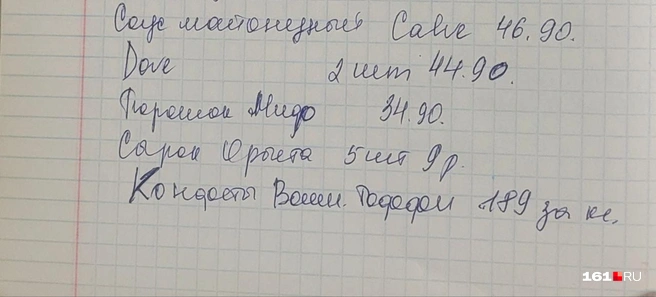 Соус майонезный Calve 46.90.
Dove 2 шт 44.90.
Порошок Миф 34.90.
Сырок Орбита 5 шт 9 р.
Конфеты Вошм. 189 за кг.
161.RU